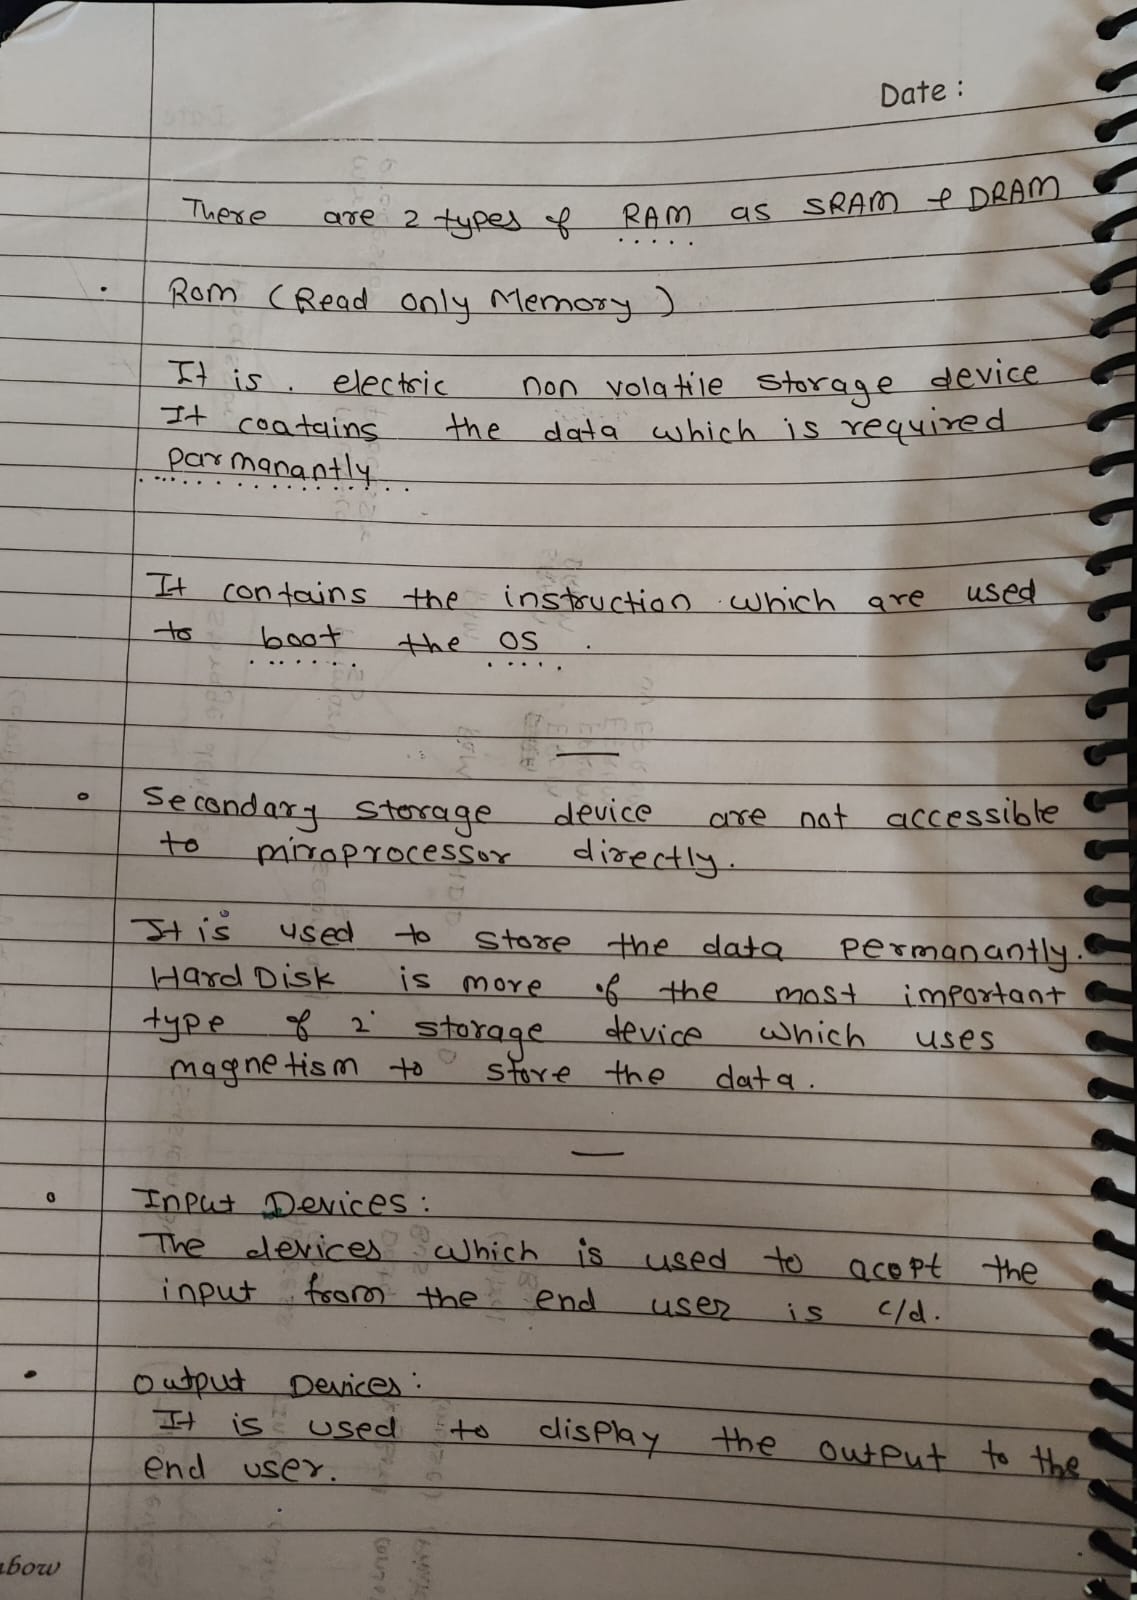 Date :
There are 2 types of RAM as SRAM & DRAM
Rom (Read only Memory)
It is . electric non volatile storage device
It coatains the data which is required
parmanantly
It contains the instruction which are used
to boot the OS .
Secondary storage device are not accessible
to miroprocessor directly.
It is used to store the data permanantly.
Hard Disk is more of the most important
type of 2° storage device which uses
magnetism to store the data.
Input Devices :
The devices which is used to acept the
input from the end user is c/d.
Output Devices :
It is used to display the output to the
end user.